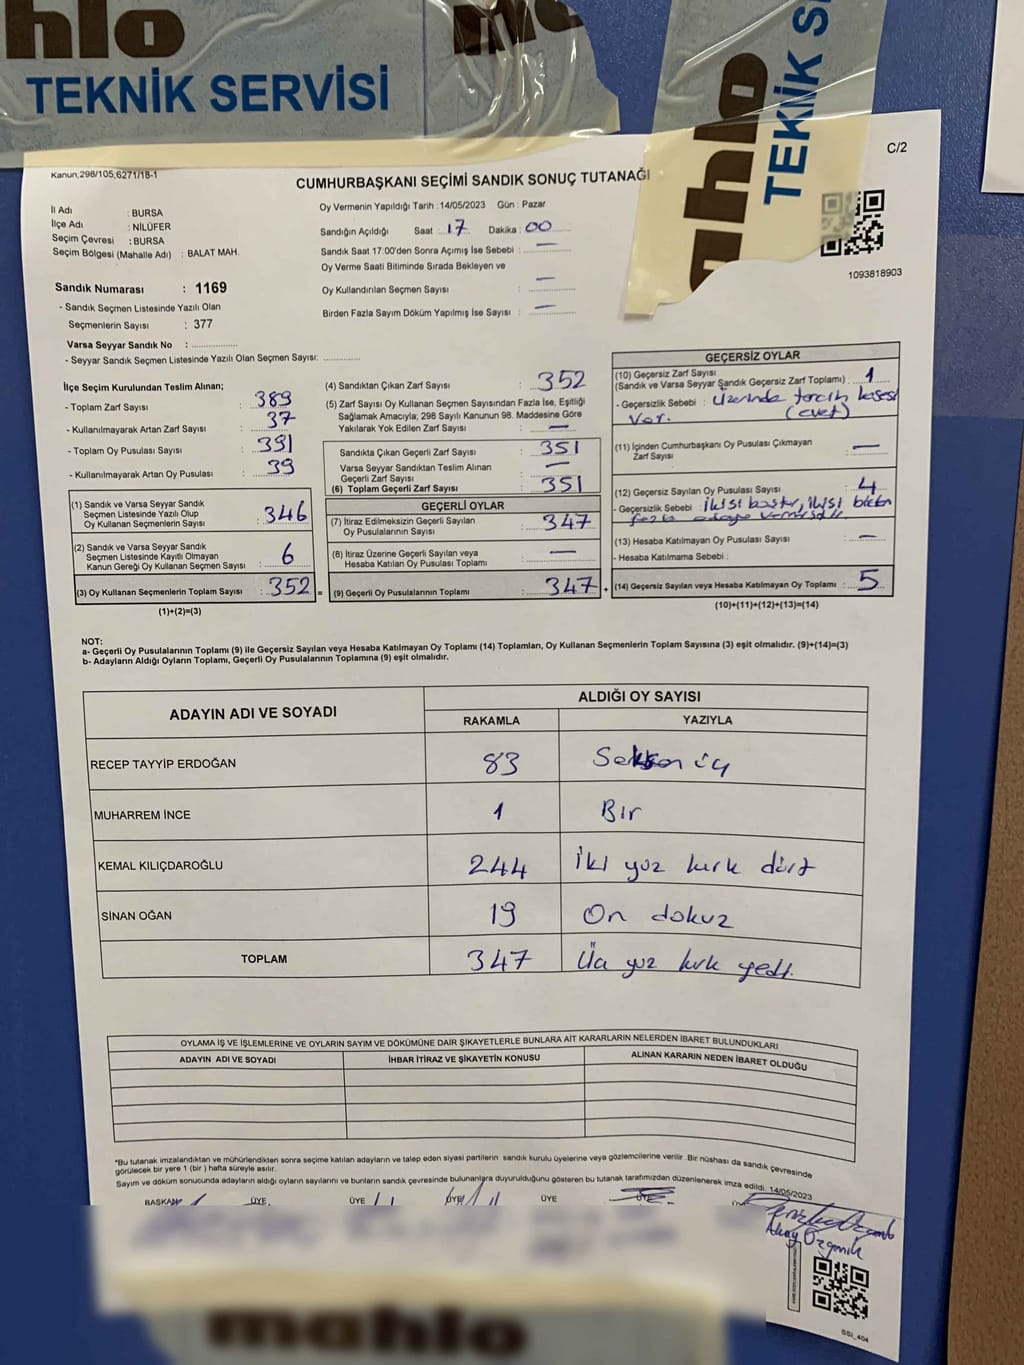 hlo
TEKNİK SERVİSİ
mahlo
TEKNİK S
C/2
Kanun;298/105,6271/18-1
CUMHURBAŞKANI SEÇİMİ SANDIK SONUÇ TUTANAĞI
Oy Vermenin Yapıldığı Tarih : 14/05/2023 Gün : Pazar
İl Adı : BURSA
İlçe Adı : NİLÜFER
Seçim Çevresi : BURSA
Seçim Bölgesi (Mahalle Adı) : BALAT MAH.
Sandık Numarası : 1169
- Sandık Seçmen Listesinde Yazılı Olan
Seçmenlerin Sayısı : 377
Varsa Seyyar Sandık No :
- Seyyar Sandık Seçmen Listesinde Yazılı Olan Seçmen Sayısı:
Sandığın Açıldığı Saat : 17 Dakika : 00
Sandık Saat 17:00'den Sonra Açılmış İse Sebebi : —
Oy Verme Saati Bitiminde Sırada Bekleyen ve
Oy Kullandırılan Seçmen Sayısı : —
Birden Fazla Sayım Döküm Yapılmış İse Sayısı : —
1093818903
İlçe Seçim Kurulundan Teslim Alınan;
- Toplam Zarf Sayısı : 389
- Kullanılmayarak Artan Zarf Sayısı : 37
- Toplam Oy Pusulası Sayısı : 391
- Kullanılmayarak Artan Oy Pusulası : 39
(1) Sandık ve Varsa Seyyar Sandık
Seçmen Listesinde Yazılı Olup
Oy Kullanan Seçmenlerin Sayısı : 346
(2) Sandık ve Varsa Seyyar Sandık
Seçmen Listesinde Kayıtlı Olmayan
Kanun Gereği Oy Kullanan Seçmen Sayısı : 6
(3) Oy Kullanan Seçmenlerin Toplam Sayısı : 352 =
(1)+(2)=(3)
(4) Sandıktan Çıkan Zarf Sayısı : 352
(5) Zarf Sayısı Oy Kullanan Seçmen Sayısından Fazla İse, Eşitliği
Sağlamak Amacıyla; 298 Sayılı Kanunun 98. Maddesine Göre
Yakılarak Yok Edilen Zarf Sayısı : —
Sandıkta Çıkan Geçerli Zarf Sayısı : 351
Varsa Seyyar Sandıktan Teslim Alınan
Geçerli Zarf Sayısı : —
(6) Toplam Geçerli Zarf Sayısı : 351
GEÇERLİ OYLAR
(7) İtiraz Edilmeksizin Geçerli Sayılan
Oy Pusulalarının Sayısı : 347
(8) İtiraz Üzerine Geçerli Sayılan veya
Hesaba Katılan Oy Pusulası Toplamı : —
(9) Geçerli Oy Pusulalarının Toplamı : 347 +
GEÇERSİZ OYLAR
(10) Geçersiz Zarf Sayısı
(Sandık ve Varsa Seyyar Sandık Geçersiz Zarf Toplamı) : 1
- Geçersizlik Sebebi : Üzerinde tercih kaşesi
Var. (evet)
(11) İçinden Cumhurbaşkanı Oy Pusulası Çıkmayan
Zarf Sayısı : —
(12) Geçersiz Sayılan Oy Pusulası Sayısı : 4
- Geçersizlik Sebebi : İkisi boştur, ikisi birden
fazla adaya
(13) Hesaba Katılmayan Oy Pusulası Sayısı : —
- Hesaba Katılmama Sebebi :
(14) Geçersiz Sayılan veya Hesaba Katılmayan Oy Toplamı : 5
(10)+(11)+(12)+(13)=(14)
NOT:
a- Geçerli Oy Pusulalarının Toplamı (9) ile Geçersiz Sayılan veya Hesaba Katılmayan Oy Toplamı (14) Toplamları, Oy Kullanan Seçmenlerin Toplam Sayısına (3) eşit olmalıdır. (9)+(14)=(3)
b- Adayların Aldığı Oyların Toplamı, Geçerli Oy Pusulalarının Toplamına (9) eşit olmalıdır.
ADAYIN ADI VE SOYADI ALDIĞI OY SAYISI
RAKAMLA YAZIYLA
RECEP TAYYİP ERDOĞAN 83 Seksen üç
MUHARREM İNCE 1 Bir
KEMAL KILIÇDAROĞLU 244 İki yüz kırk dört
SİNAN OĞAN 19 On dokuz
TOPLAM 347 Üç yüz kırk yedi.
OYLAMA İŞ VE İŞLEMLERİNE VE OYLARIN SAYIM VE DÖKÜMÜNE DAİR ŞİKAYETLERLE BUNLARA AİT KARARLARIN NELERDEN İBARET BULUNDUKLARI
ADAYIN ADI VE SOYADI İHBAR İTİRAZ VE ŞİKAYETİN KONUSU ALINAN KARARIN NEDEN İBARET OLDUĞU
*Bu tutanak imzalandıktan ve mühürlendikten sonra seçime katılan adayların ve talep eden siyasi partilerin sandık kurulu üyelerine veya gözlemcilerine verilir. Bir nüshası da sandık çevresinde
görülecek bir yere 1 (bir) hafta süreyle asılır.
Sayım ve döküm sonucunda adayların aldığı oyların sayılarını ve bunların sandık çevresinde bulunanlara duyurulduğunu gösteren bu tutanak tarafımızdan düzenlenerek imza edildi. 14/05/2023
BAŞKAN ÜYE ÜYE ÜYE ÜYE
mahlo
SSI_404